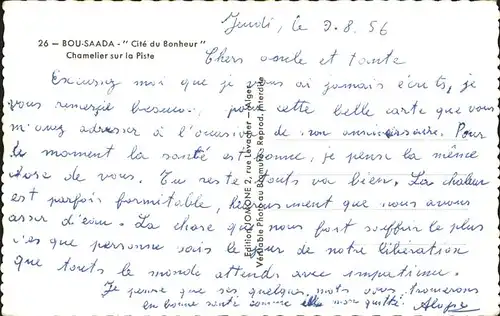 Jeudi, le 9.8.56
26 — BOU-SAADA - "Cité du Bonheur"
Chamelier sur la Piste
Chers oncle et tante
Excusez moi que je vous ai jamais écrits, je
vous remercie beaucoup pour cette belle carte que vous
m'avez adresser à l'occasion de mon anniversaire. Pour
le moment la santé est bonne, je pense la même
chose de vous. Du reste touts va bien. La chaleur
est parfois formitable, heureusement que nous avons
assez d'eau. La chose qui nous fait souffrir le plus
c'es que personne sais le jour de notre libération
que touts le monde attends avec impatience.
Je pense que ses quelques mots vous trouverons
en bonne santé comme elle mon quitté.
Edition JOMONE 2, rue Levacher — Alger
Véritable Photo au Bromure - Reprod. Interdite